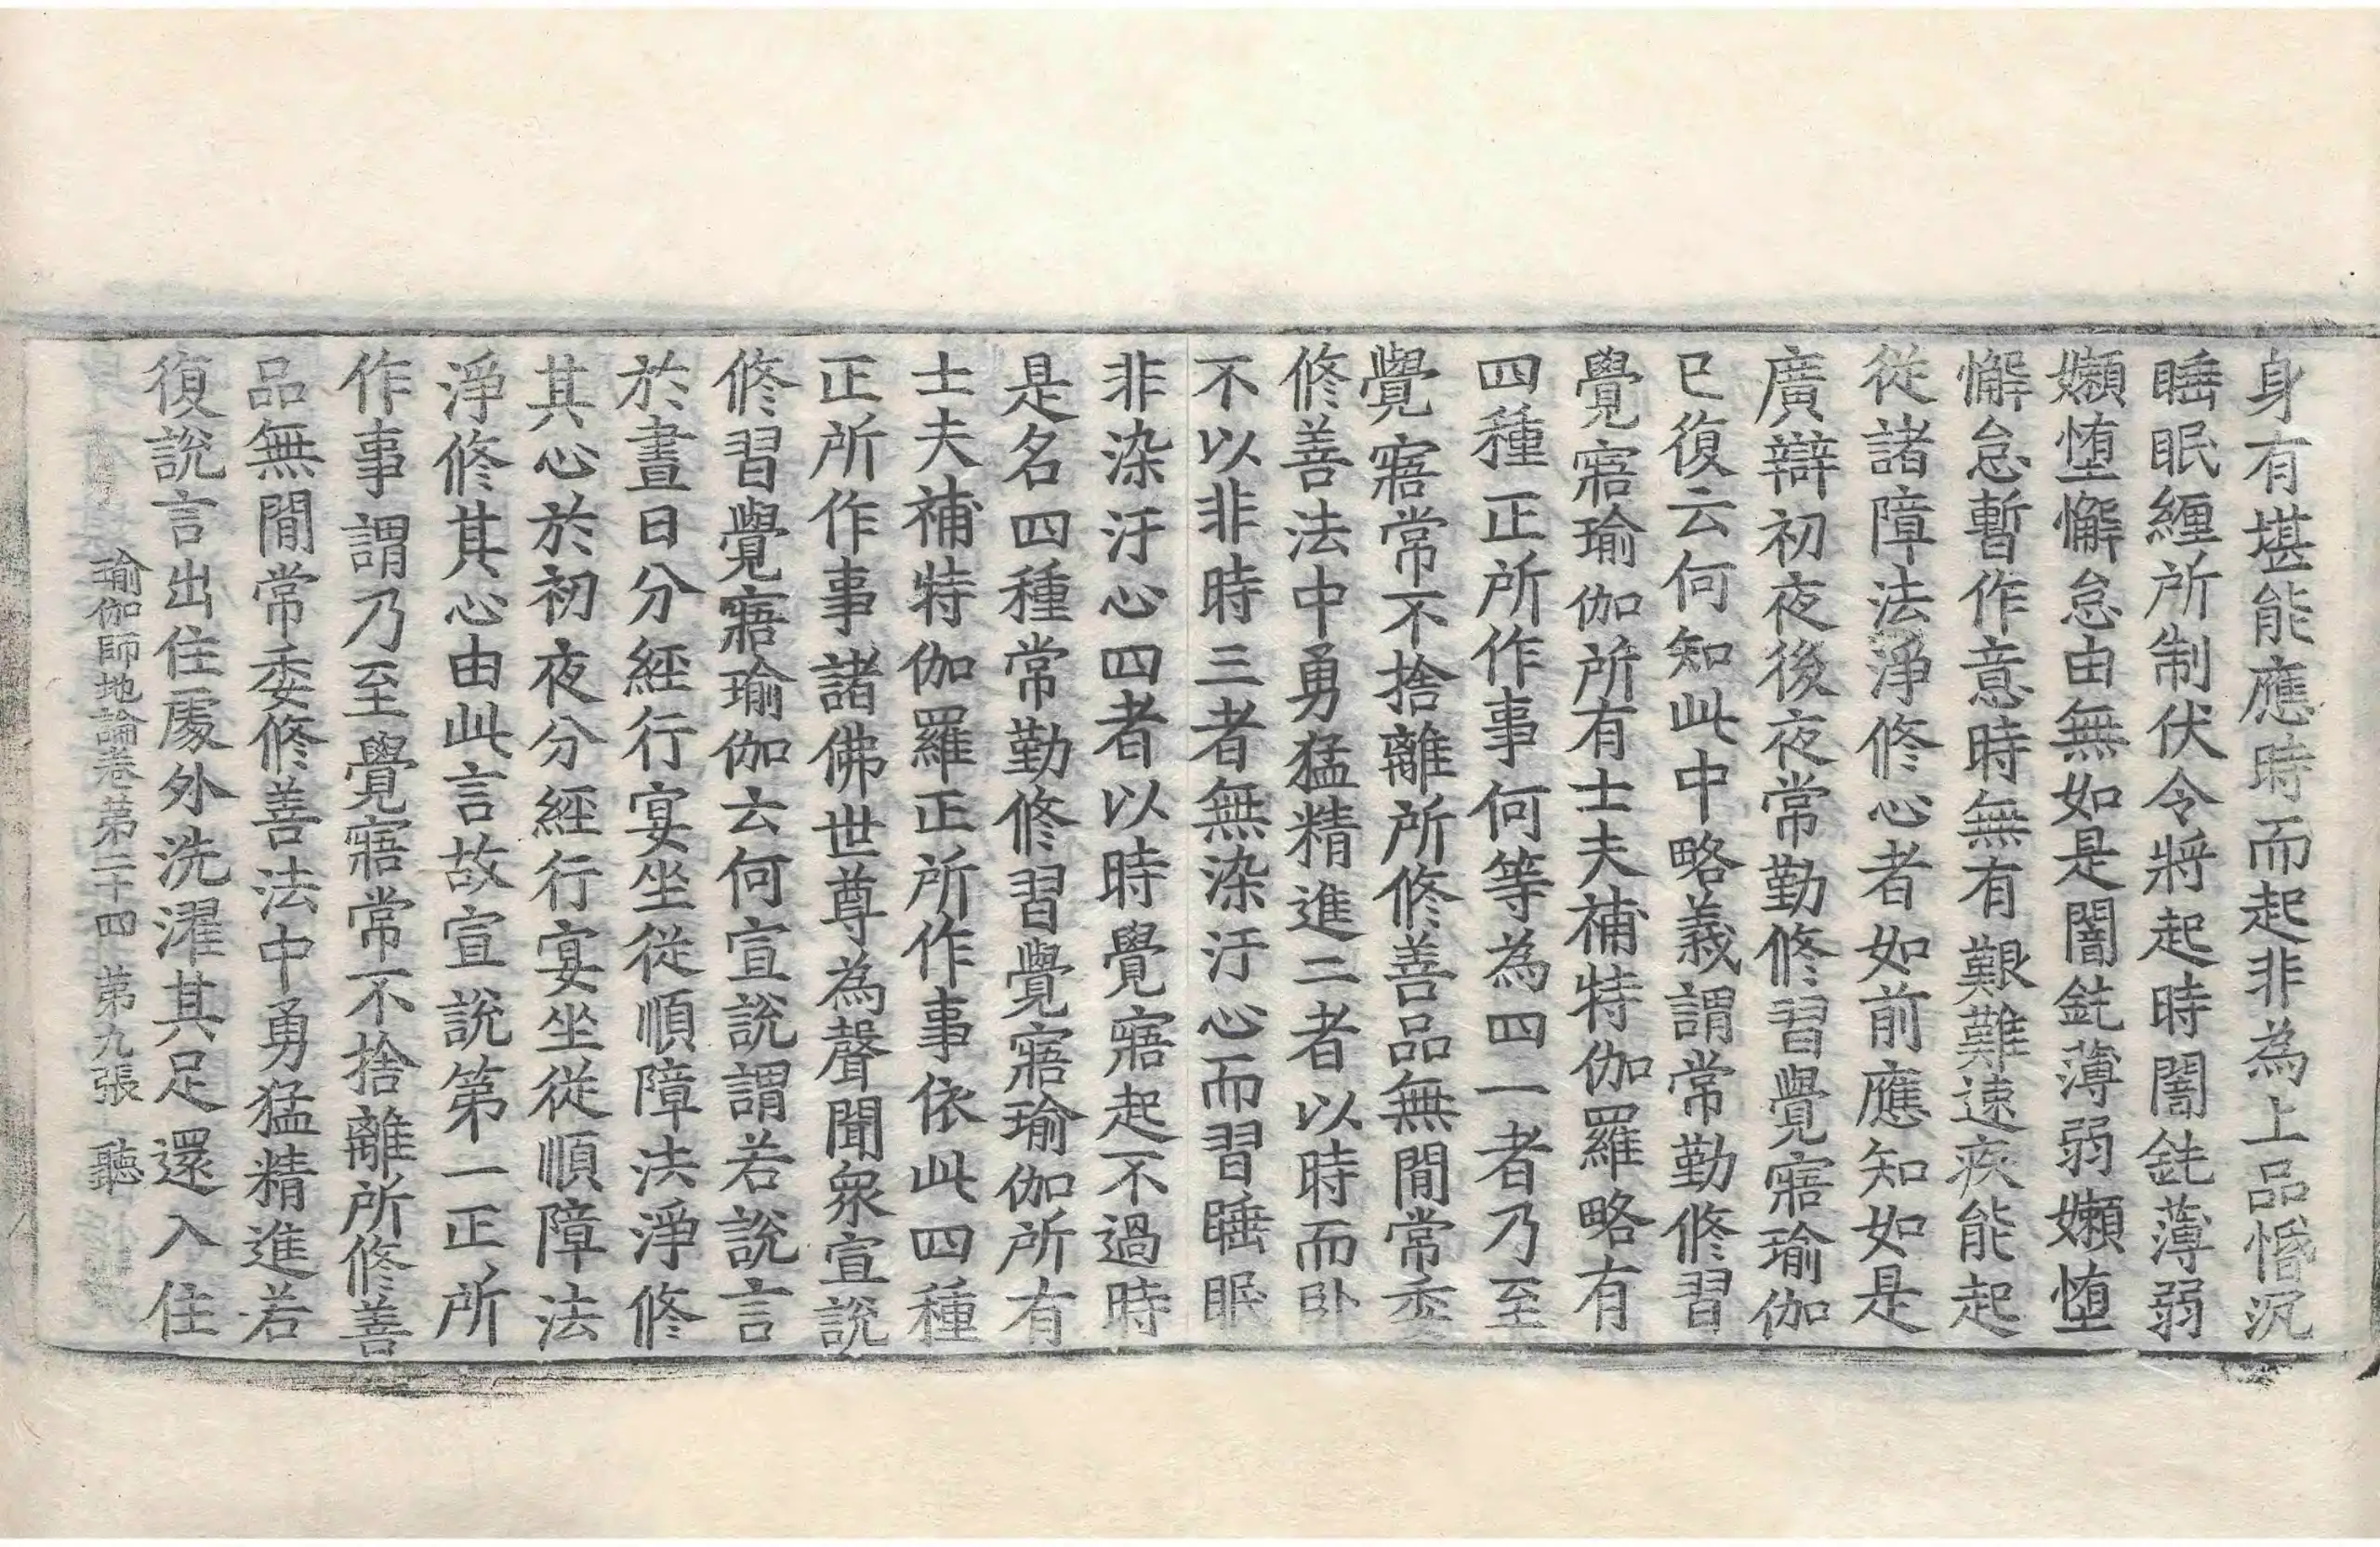 身有堪能應時而起非為上品惛沉
睡眠纏所制伏令將起時闇鈍薄弱
嬾墯懈怠由無如是闇鈍薄弱嬾墯
懈怠暫作意時無有艱難速疾能起
從諸障法淨修心者如前應知如是
廣辯初夜後夜常勤修習覺寤瑜伽
已復云何知此中略義謂常勤修習
覺寤瑜伽所有士夫補特伽羅略有
四種正所作事何等為四一者乃至
覺寤常不捨離所修善品無間常委
修善法中勇猛精進二者以時而卧
不以非時三者無染汙心而習睡眠
非染汙心四者以時覺寤起不過時
是名四種常勤修習覺寤瑜伽所有
士夫補特伽羅正所作事依此四種
正所作事諸佛世尊為聲聞衆宣說
修習覺寤瑜伽云何宣說謂若說言
於晝日分經行宴坐從順障法淨修
其心於初夜分經行宴坐從順障法
淨修其心由此言故宣說第一正所
作事謂乃至覺寤常不捨離所修善
品無間常委修善法中勇猛精進若
復說言出住處外洗濯其足還入住
瑜伽師地論卷第二十四 第九張 聽